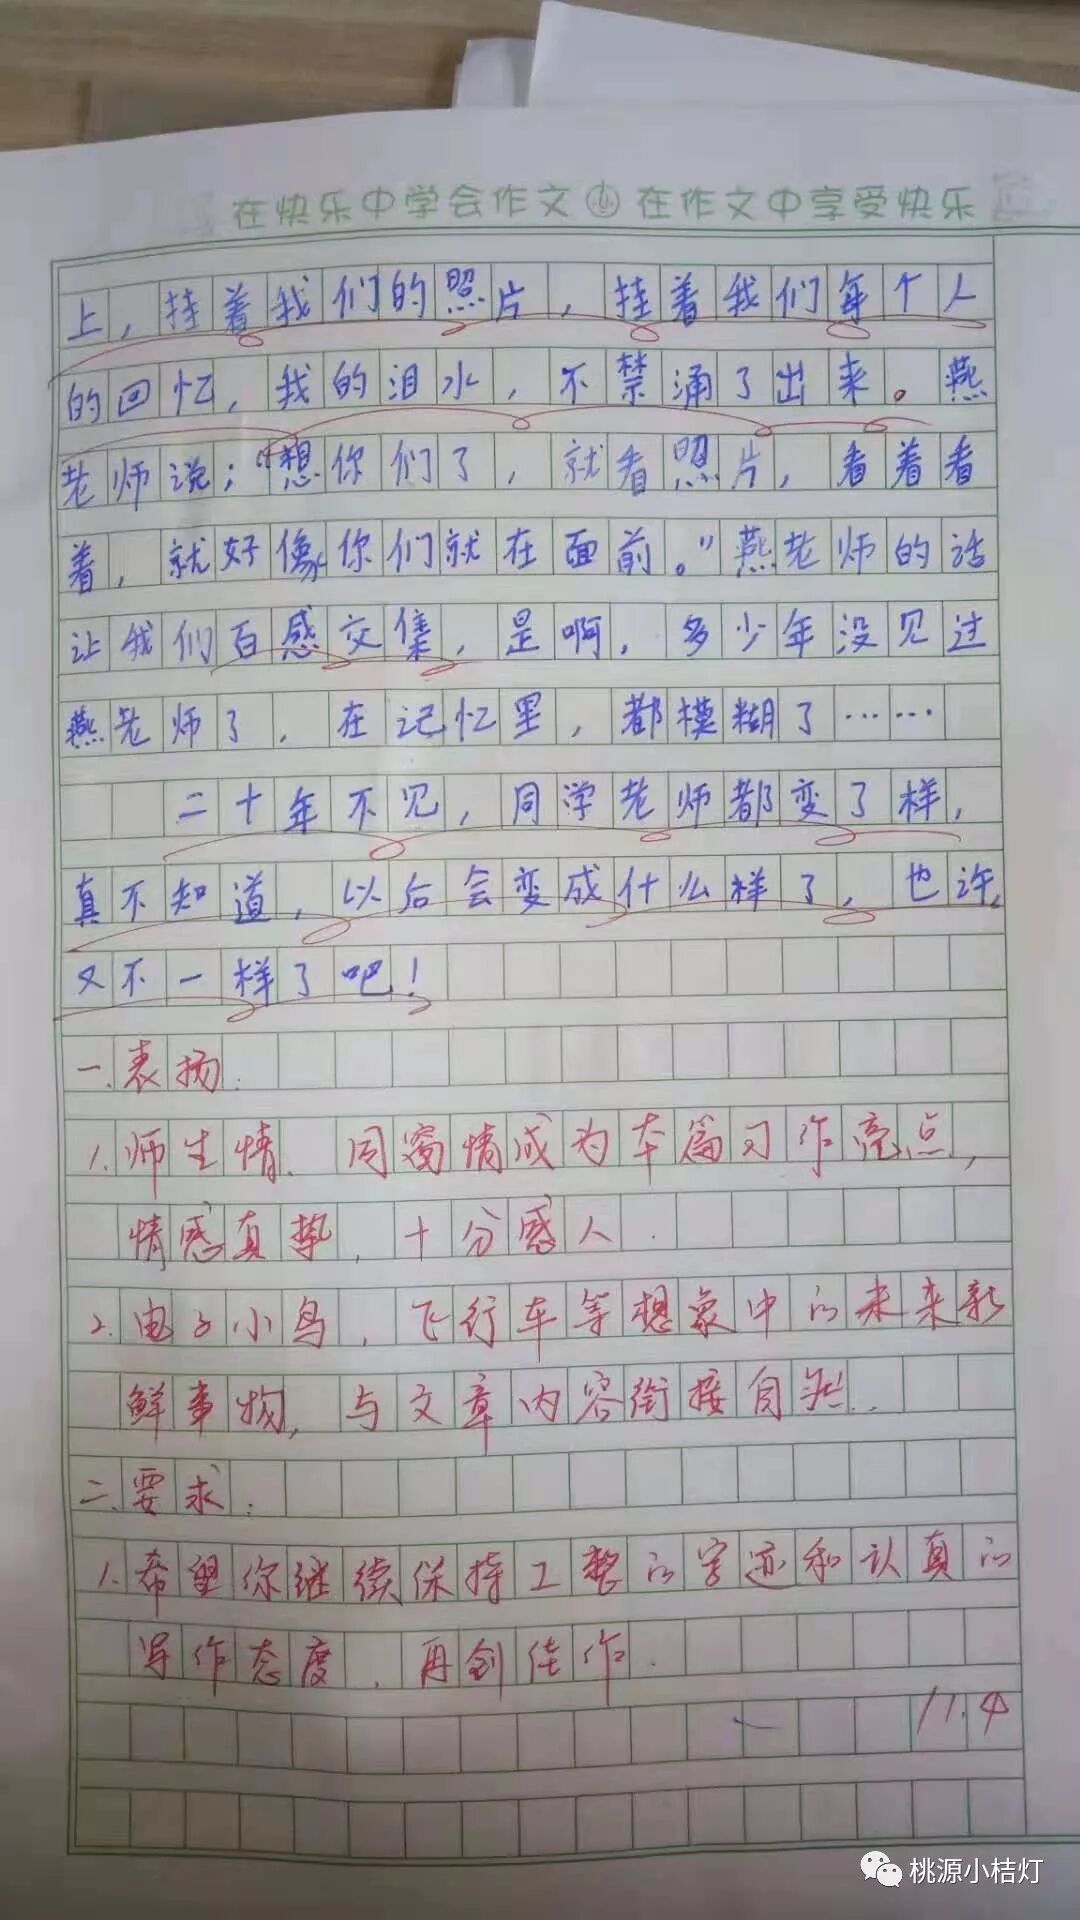 在快乐中学会作文 在作文中享受快乐
上，挂着我们的照片，挂着我们每个人
的回忆，我的泪水，不禁涌了出来。燕
老师说；“想你们了，就看照片，看着看
着，就好像你们就在面前。”燕老师的话
让我们百感交集，是啊，多少年没见过
燕老师了，在记忆里，都模糊了……
二十年不见，同学老师都变了样，
真不知道，以后会变成什么样了，也许，
又不一样了吧！
一.表扬：
1.师生情、同窗情成为本篇习作亮点，
情感真挚，十分感人.
2.电子小鸟，飞行车等想象中的未来新
鲜事物，与文章内容衔接自然.
二.要求：
1.希望你继续保持工整的字迹和认真的
写作态度，再创佳作.
11.4
桃源小桔灯